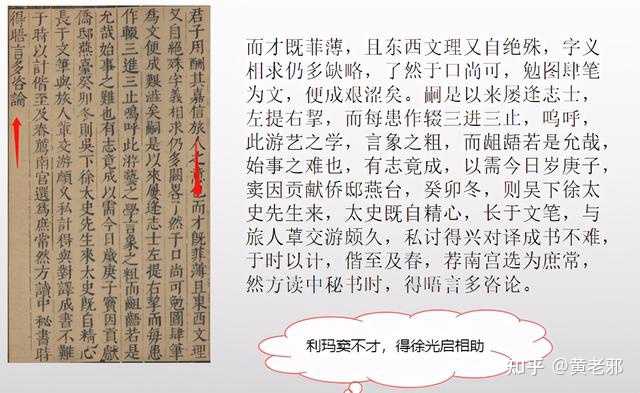 君子用酬其嘉信旅人之而才既菲薄且東西文理
又自絕殊字義相求仍多闕畧了然于口尚可勉圖肆筆
為文便成艱澁矣嗣是以來屢逢志士左提右挈而每患
作輟三進三止嗚呼此游藝之學言象之粗而齟齬若是
允哉始事之難也有志竟成以需今日歲庚子竇因貢獻
僑邸燕臺癸卯冬則吳下徐太史先生來太史既自精心
長于文筆與旅人輩交游頗久私計得與對譯成書不難
于時以計偕至及春薦南宮選為庶常然方讀中秘書時
得晤言多咨論
而才既菲薄,且东西文理又自绝殊,字义
相求仍多缺略,了然于口尚可,勉图肆笔
为文,便成艰涩矣。嗣是以来屡逢志士,
左提右挈,而每患作辍三进三止,呜呼,
此游艺之学,言象之粗,而龃龉若是允哉,
始事之难也,有志竟成,以需今日岁庚子,
窦因贡献侨邸燕台,癸卯冬,则吴下徐太
史先生来,太史既自精心,长于文笔,与
旅人蕈交游颇久,私讨得兴对译成书不难,
于时以计,偕至及春,荐南宫选为庶常,
然方读中秘书时,得唔言多咨论。
利玛窦不才,得徐光启相助
知乎 @黄老邪